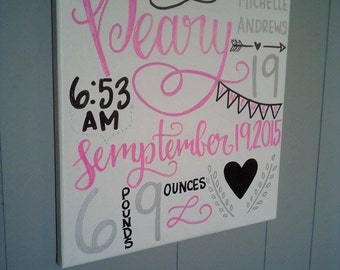 MICHELLE
Peary
ANDREWS
19
6:53
AM
Semptember 19, 2015
6 POUNDS 9 OUNCES